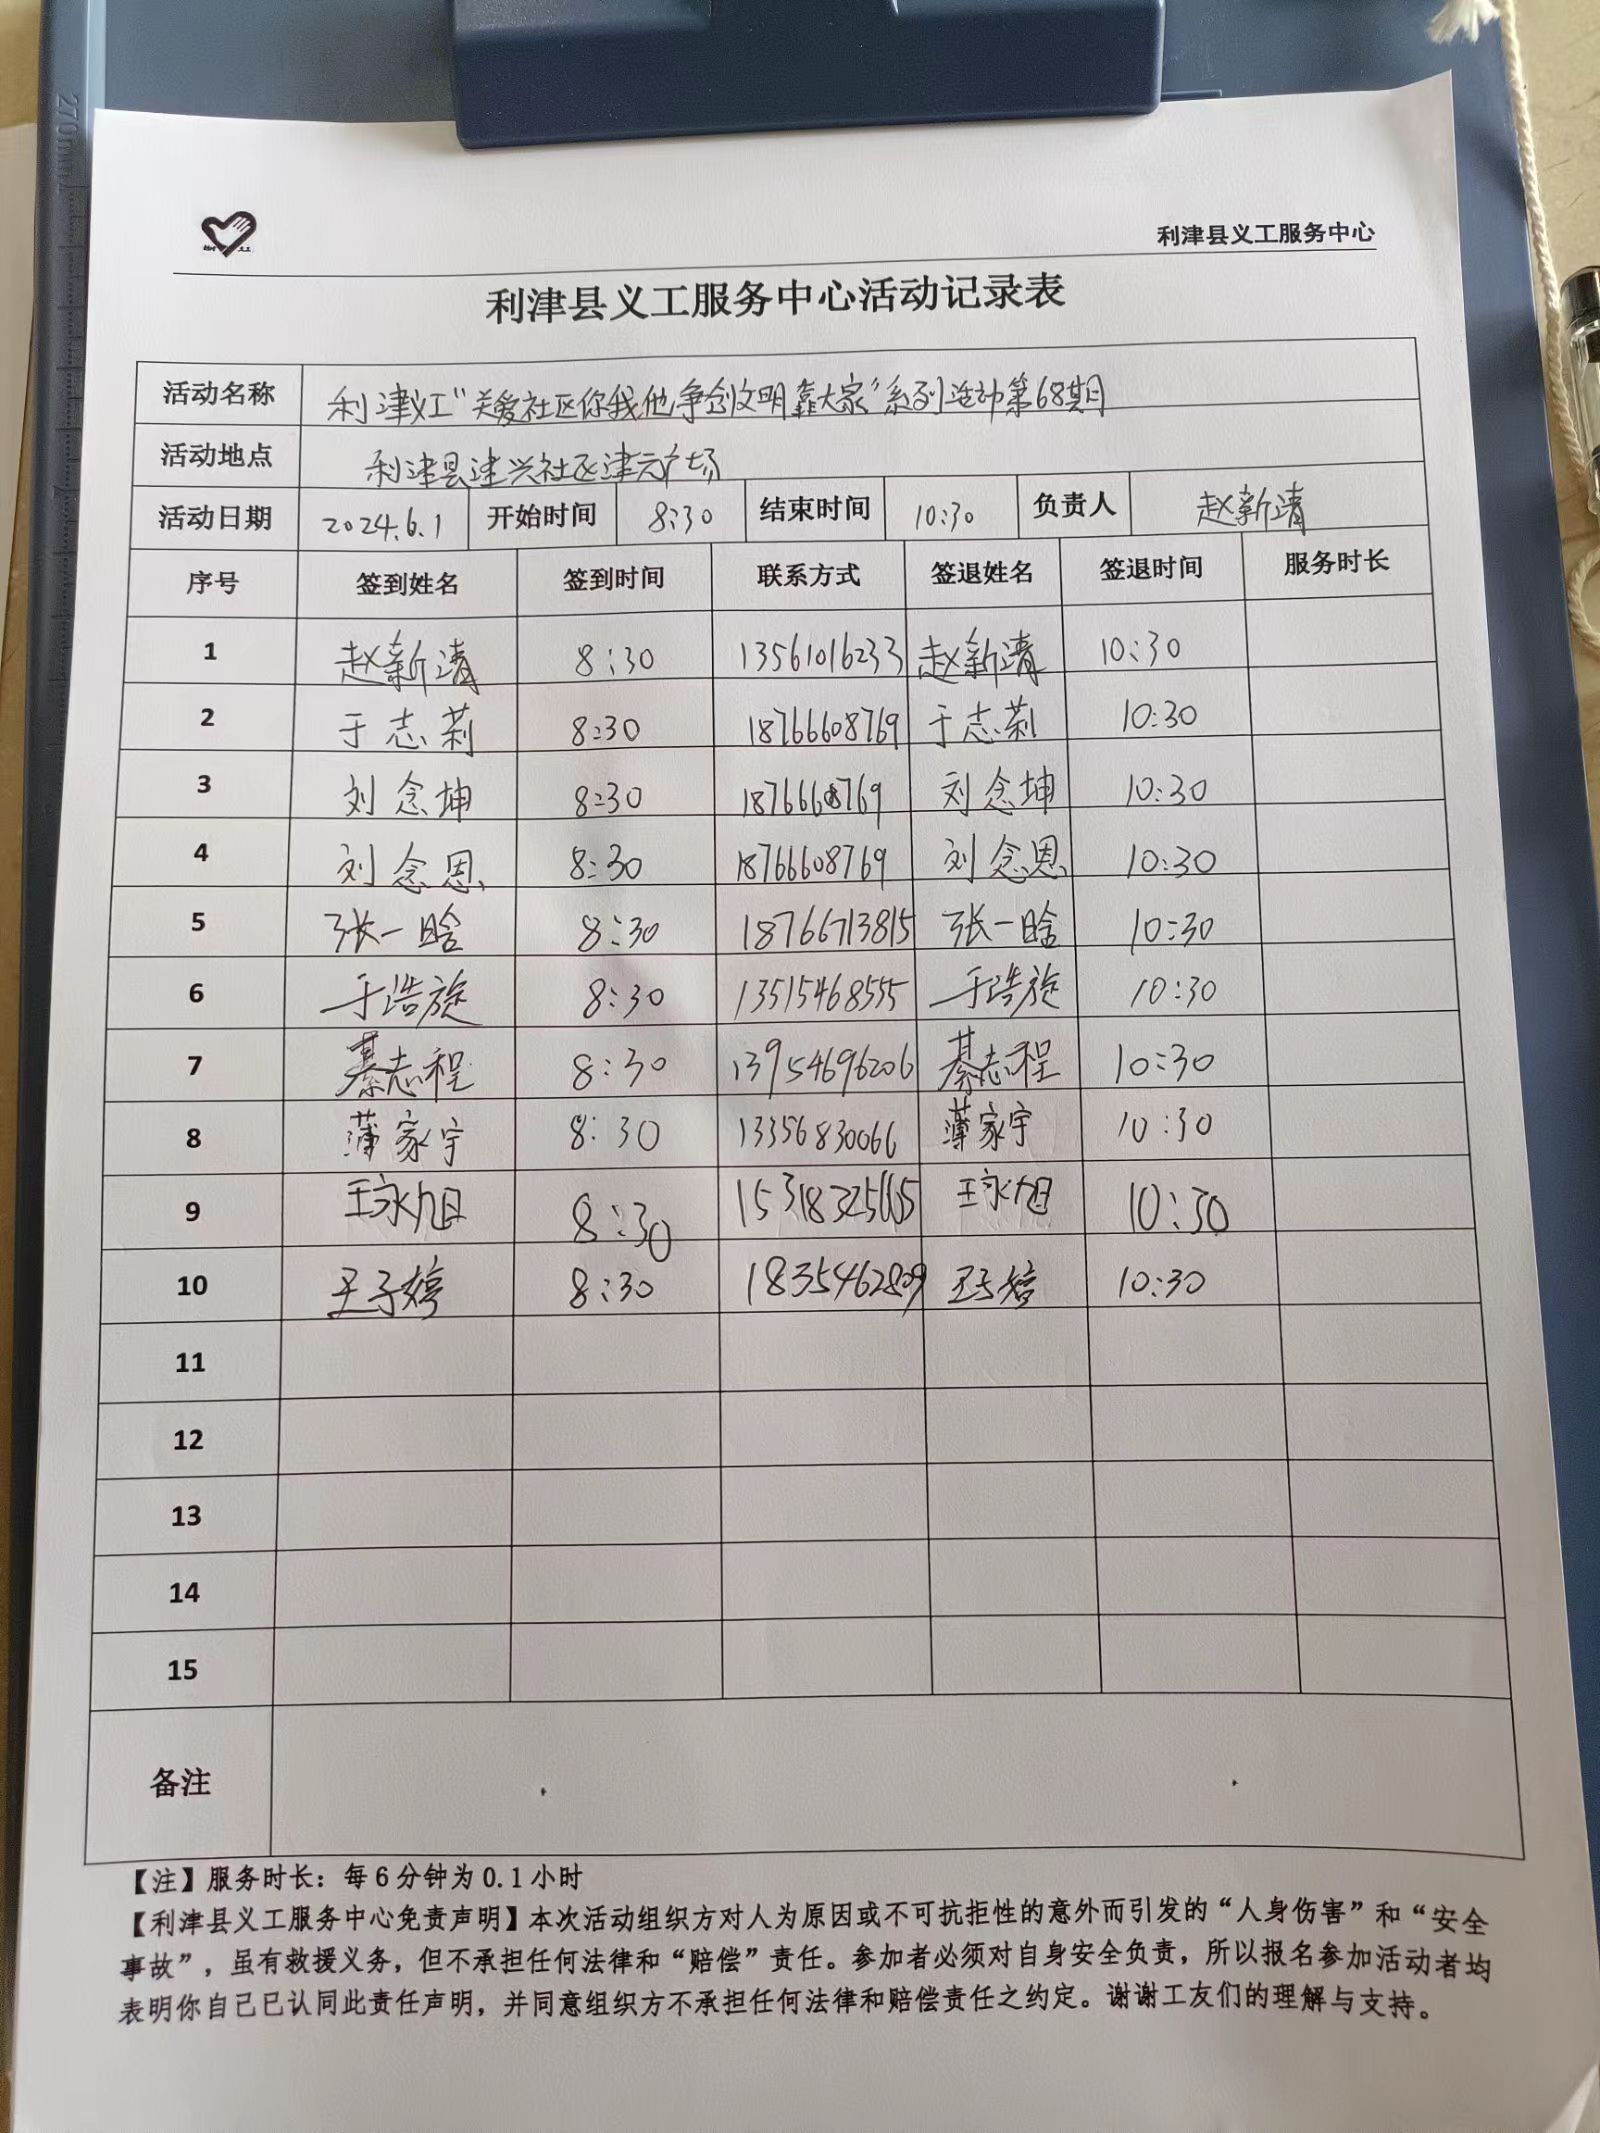 270mm
利津县义工服务中心
利津县义工服务中心活动记录表
活动名称 利津义工“关爱社区你我他争创文明靠大家”系列活动第68期
活动地点 利津县津兴社区津元广场
活动日期 2024.6.1 开始时间 8:30 结束时间 10:30 负责人 赵新清
序号 签到姓名 签到时间 联系方式 签退姓名 签退时间 服务时长
1 赵新清 8:30 13561016233 赵新清 10:30
2 于志莉 8:30 18766608769 于志莉 10:30
3 刘念坤 8:30 1876668769 刘念坤 10:30
4 刘念恩 8:30 18766608769 刘念恩 10:30
5 张一晗 8:30 18766713815 张一晗 10:30
6 于浩旋 8:30 13515468555 于浩旋 10:30
7 綦志程 8:30 13954696206 綦志程 10:30
8 薄家宇 8:30 13356830066 薄家宇 10:30
9 王永旭 8:30 15318325665 王永旭 10:30
10 王子婷 8:30 1835462809 王子婷 10:30
11
12
13
14
15
备注
【注】服务时长：每6分钟为0.1小时
【利津县义工服务中心免责声明】本次活动组织方对人为原因或不可抗拒性的意外而引发的“人身伤害”和“安全
事故”，虽有救援义务，但不承担任何法律和“赔偿”责任。参加者必须对自身安全负责，所以报名参加活动者均
表明你自己已认同此责任声明，并同意组织方不承担任何法律和赔偿责任之约定。谢谢工友们的理解与支持。